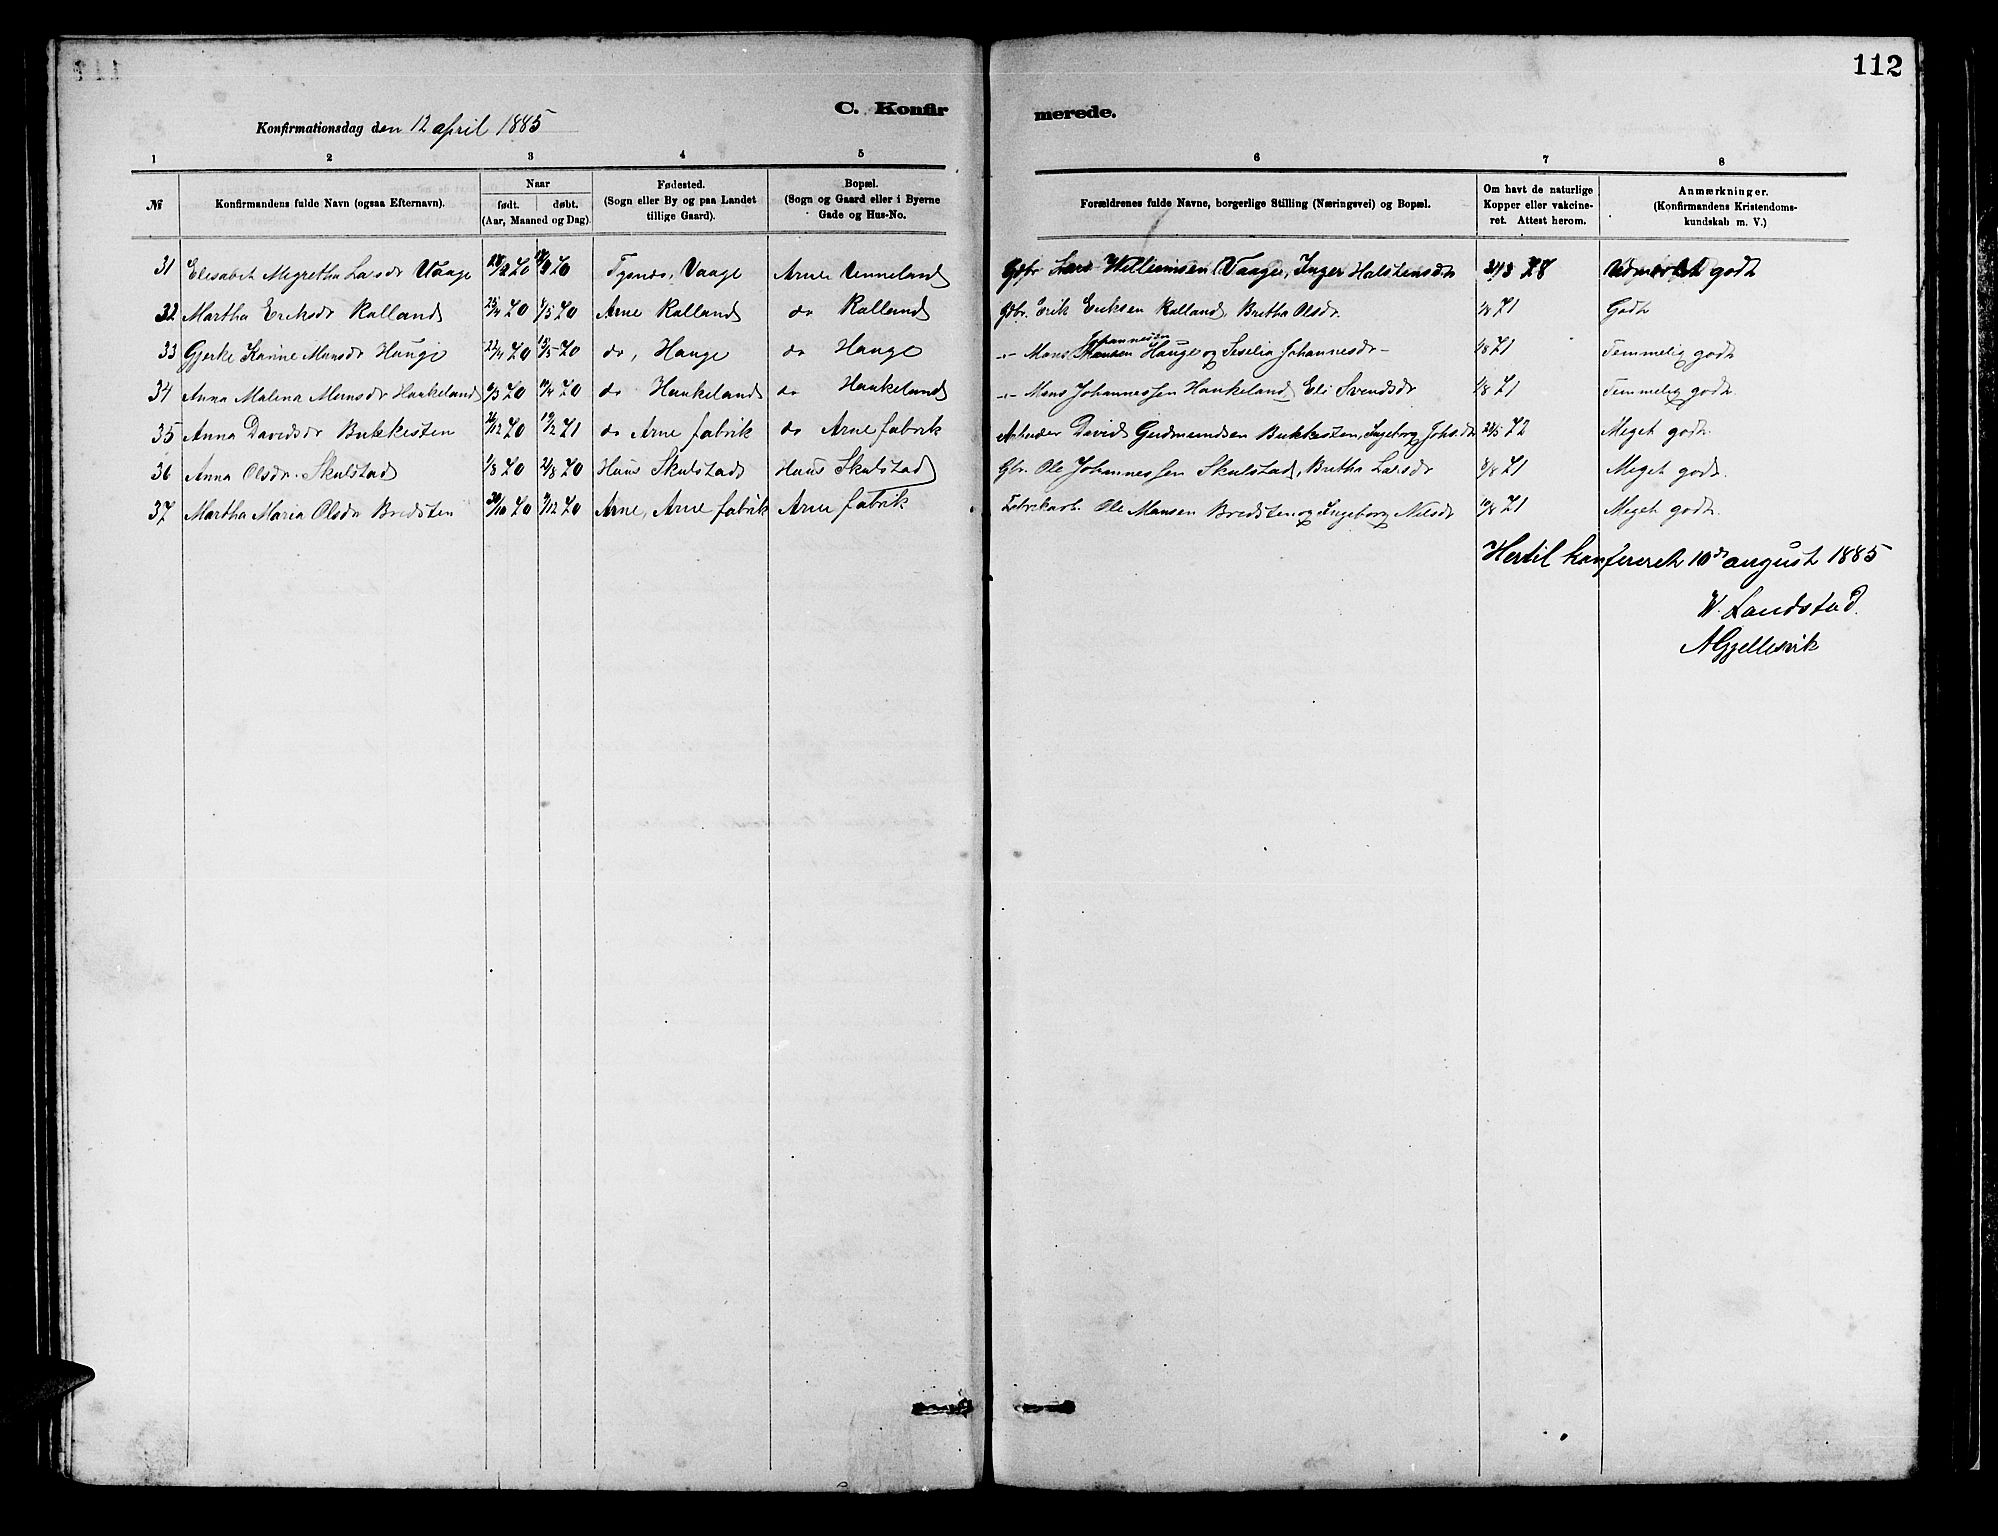 112
C. Konfirmerede.
Konfirmationsdag den 12 april 1885
1 2 3 4 5 6 7 8
№ Konfirmandens fulde Navn (ogsaa Efternavn). Naar født. døbt. (Aar, Maaned og Dag). Fødested. (Sogn eller By og paa Landet tillige Gaard). Bopæl. (Sogn og Gaard eller i Byerne Gade og Hus-No. Forældrenes fulde Navne, borgerlige Stilling (Næringsvei) og Bopæl. Om havt de naturlige Kopper eller vakcineret. Attest herom. Anmærkninger. (Konfirmandens Kristendomskundskab m. V.)
31 Elisabet Megretha Larsdr Vaage 70 70 Tysnes, Vaage Arne Unneland Gdbr Lars Willumsen Vaage, Inger Halstensdr 78 Udmærket godt
32 Martha Eriksdr Ralland 70 1/5 70 Arne Ralland do Ralland Gdbr. Erik Eriksen Ralland, Britha Olsdr. 71 Godt
33 Gjerke Karine Mansdr Hauge 22/4 70 70 do, Hauge do Hauge -"- Mans Johannesen Hauge og Seselia Johannesdr 1/8 71 Temmelig godt
34 Anna Malina Mansdr Haukeland 70 70 do Haukeland do Haukeland -"- Mans Johannessen Haukeland Eli Svendsdr 1/8 71 Temmelig godt.
35 Anna Davidsdr Bukkesten 70 71 do Arne fabrik do Arne fabrik Arbeider David Gudmundsen Bukkesten, Ingeborg Johs.dr 72 Meget godt.
36 Anna Olsdr. Skulstad 70 70 Haus Skulstad Haus Skulstad Gbr. Ole Johannessen Skulstad, Britha Larsdr 71 Meget godt.
37 Martha Maria Olsdr Bredsten 30/10 70 70 Arne, Arne fabrik Arne fabrik Fabrikarb. Ole Mansen Bredsten og Ingeborg Nilsdr 71 Meget godt.
Hertil konfereret 10de august 1885
W. Landstad.
A Gjellesvik